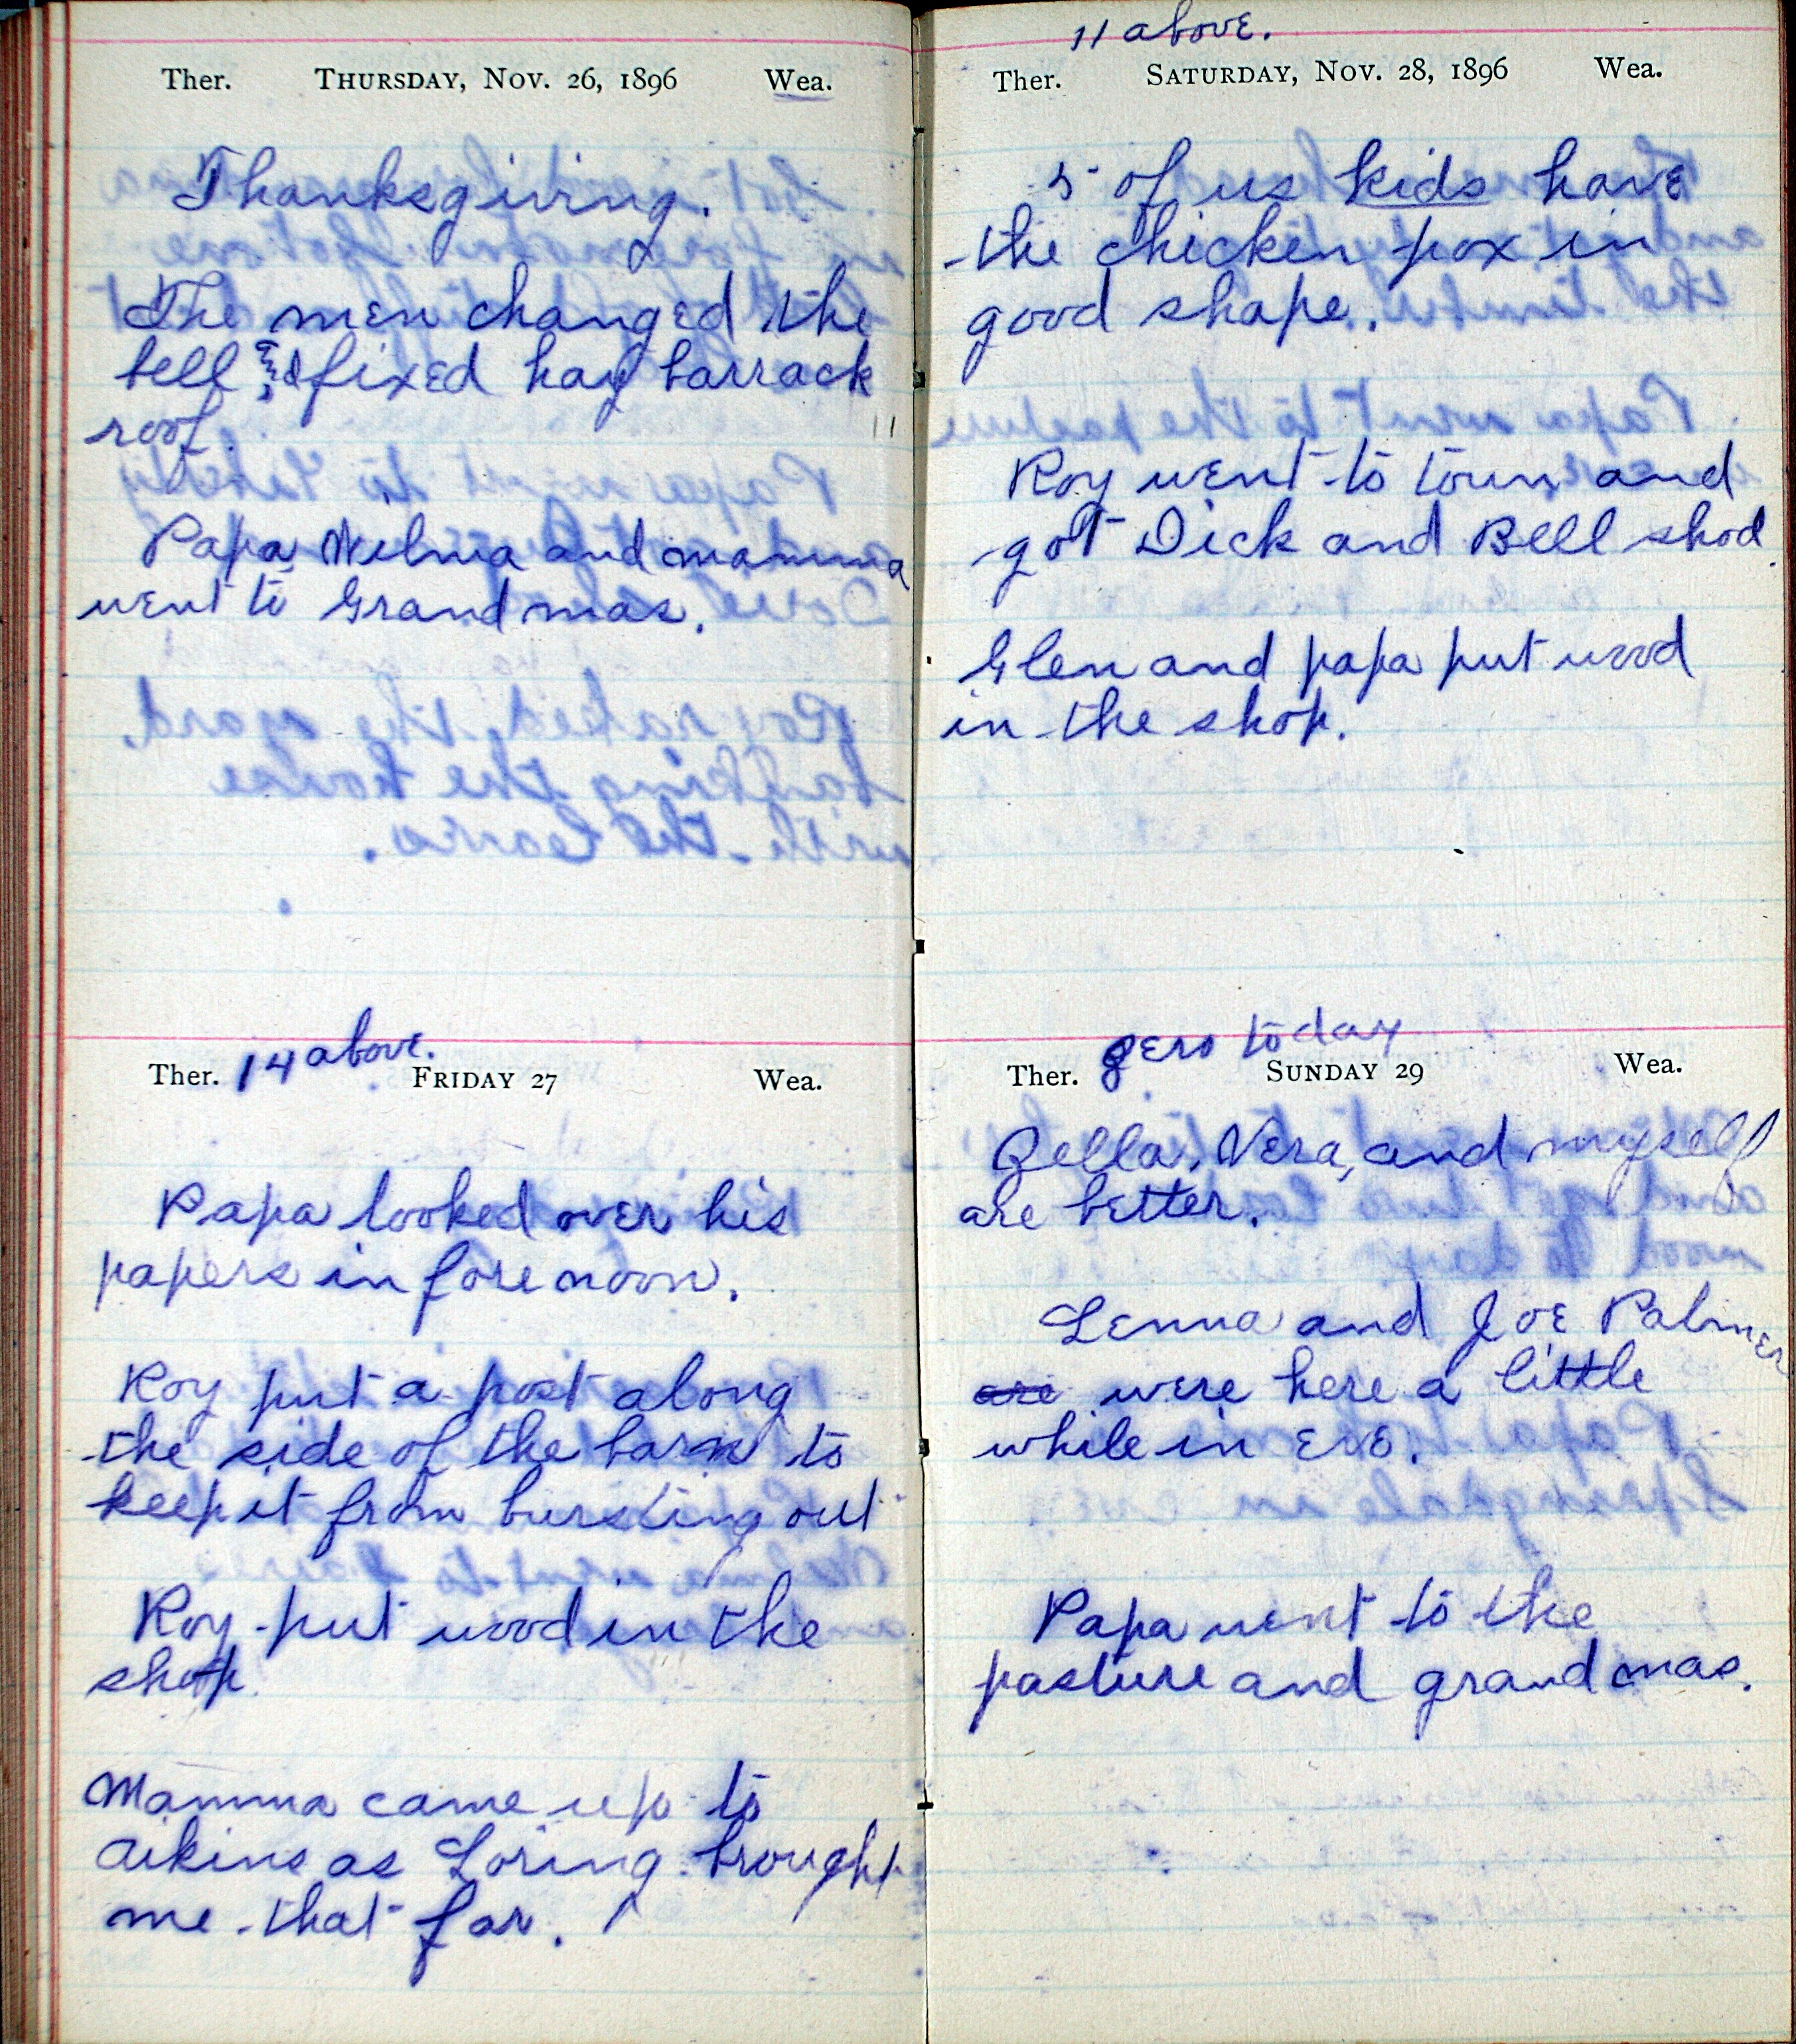 Ther. THURSDAY, NOV. 26, 1896 Wea.
Thanksgiving.
The men changed the
bell & fixed hay barrack
roof.
Papa, Wilma and mamma
went to Grandmas.
Ther. 14 above. FRIDAY 27 Wea.
Papa looked over his
papers in forenoon.
Roy put a post along
the side of the barn to
keep it from bursting out
Roy put wood in the
shop.
Mamma came up to
Aikins as Loring brought
me that far.
11 above.
Ther. SATURDAY, NOV. 28, 1896 Wea.
5 of us kids have
the chicken pox in
good shape.
Roy went to town and
got Dick and Bell shod.
Glen and papa put wood
in the shop.
zero today
Ther. SUNDAY 29 Wea.
Zella, Vera, and myself
are better.
Lenna and Joe Palmer
are were here a little
while in eve.
Papa went to the
pasture and grandmas.